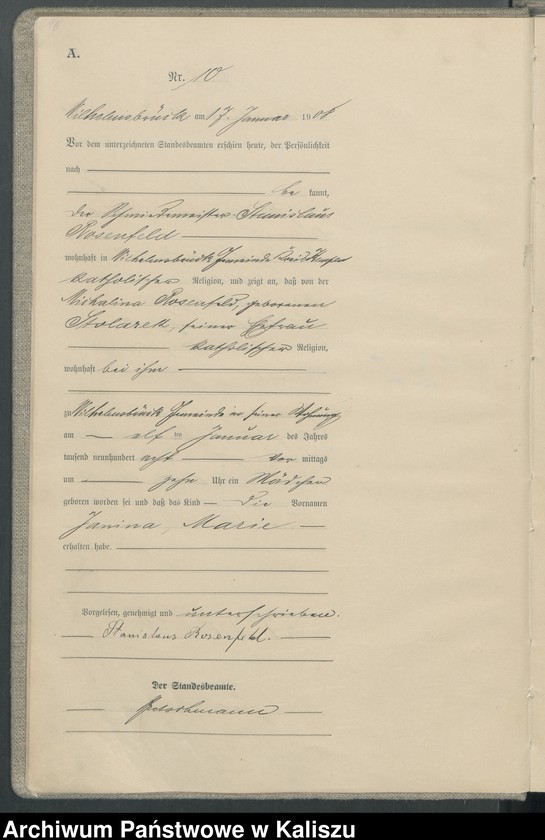 A.
Nr. 10
Wilhelmsbrück am 17. Januar 1908
Vor dem unterzeichneten Standesbeamten erschien heute, der Persönlichkeit
nach
be kannt,
der Schmiedemeister Stanislaus
Rosenfeld
wohnhaft in Wilhelmsbrück Gemeinde Kreis Kempen
katholischer Religion, und zeigte an, daß von der
Michalina Rosenfeld, geborenen
Stolarek, seiner Ehefrau
katholischer Religion,
wohnhaft bei ihm
zu Wilhelmsbrück Gemeinde in seiner Wohnung
am elf ten Januar des Jahres
tausend neunhundert acht Vor mittags
um zehn Uhr ein Mädchen
geboren worden sei und daß das Kind die Vornamen
Janina, Marie
erhalten habe.
Vorgelesen, genehmigt und unterschrieben.
Stanislaus Rosenfeld.
Der Standesbeamte.
Archiwum Państwowe w Kaliszu